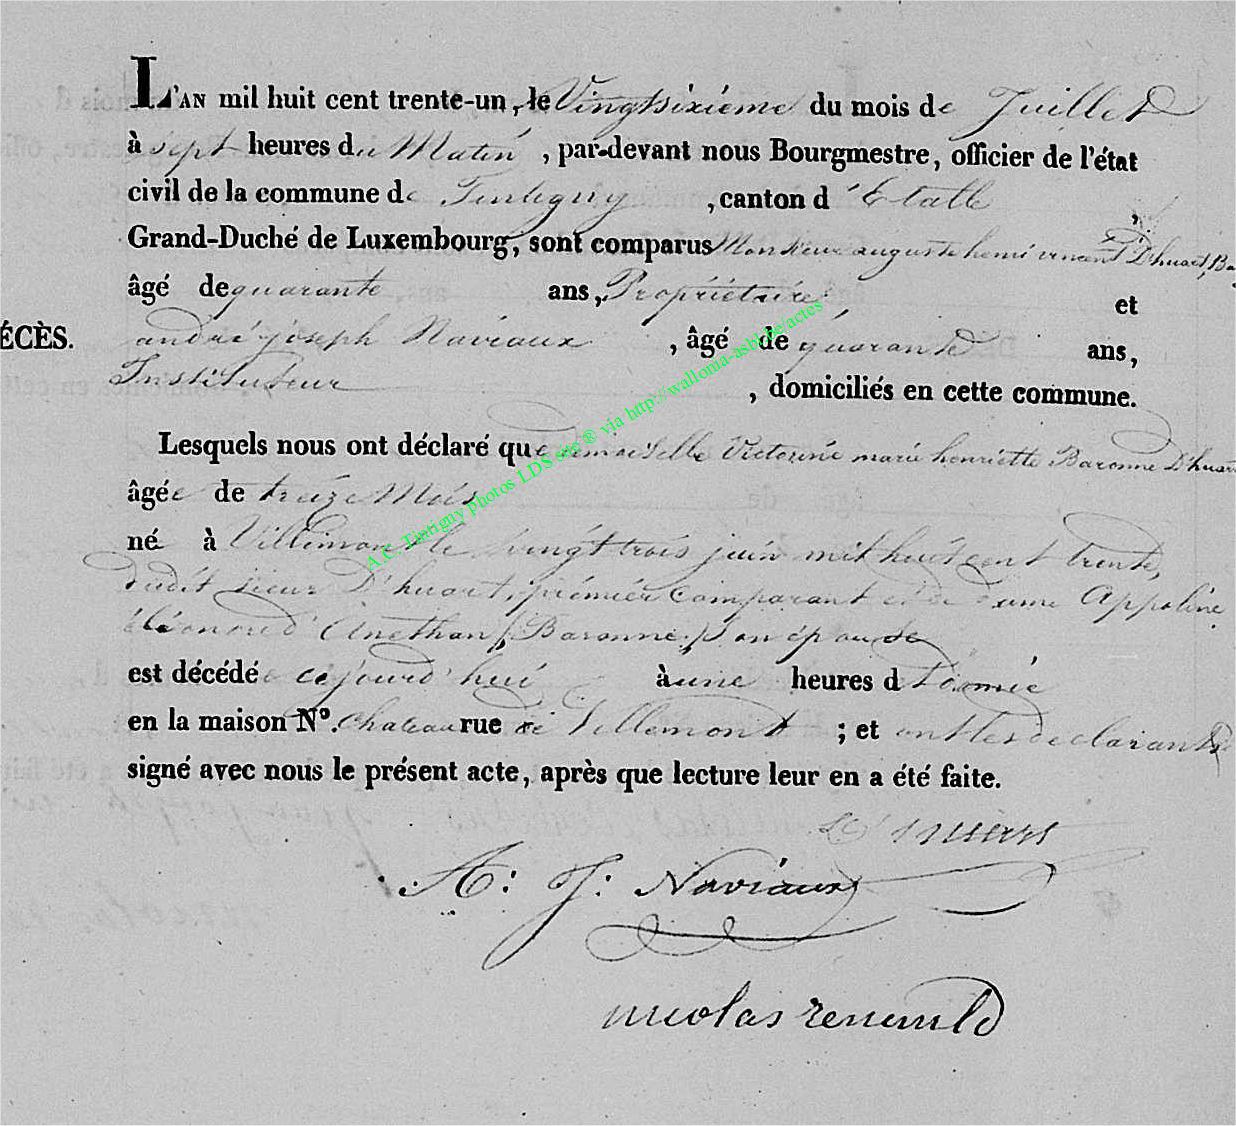 L'AN mil huit cent trente-un, le Vingtsixiéme du mois de Juillet
à sept heures du Matin, par-devant nous Bourgmestre, officier de l'état
civil de la commune de Tintigny, canton d'Etalle,
Grand-Duché de Luxembourg, sont comparus Monsieur auguste henri vincent D'huart, Ba
âgé de quarante ans, Propriétaire et
ÉCÈS.
andré joseph Naviaux, âgé de quarante ans,
Instituteur, domiciliés en cette commune.
Lesquels nous ont déclaré que demoiselle Victorine marie henriette Baronne D'huart
âgée de treize Mois
né à Villemont le vingt trois juin mil huit cent trente,
dudit sieur D'huart, prémiér comparant et de Dame Appoline
éléonore d'Anethan, (Baronne,) son épouse
est décédée cejourd'hui à une heures d
en la maison N°. Chateau rue de Villemont; et ont les declarants
signé avec nous le présent acte, après que lecture leur en a été faite.
D'huart
A: J: Naviaux
nicolas renauld
A.C. Tintigny photos LDS site ® via http://wallonia-asbl.be/actes